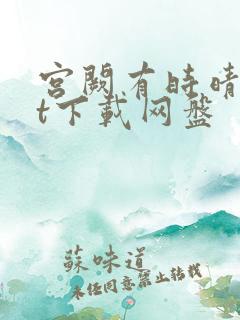 宫阙有时晴
t下载网盘
蘇味道
未经同意禁止转载